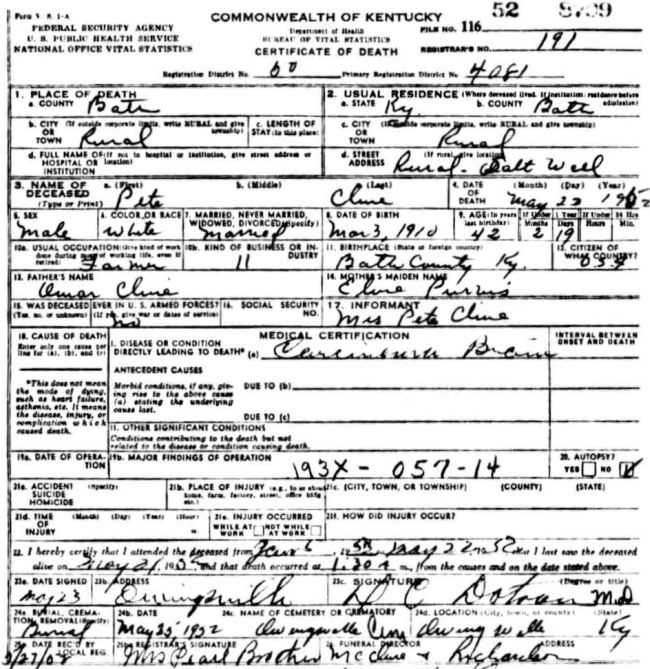 Form V. S. 1-A
FEDERAL SECURITY AGENCY
U. S. PUBLIC HEALTH SERVICE
NATIONAL OFFICE VITAL STATISTICS
COMMONWEALTH OF KENTUCKY
Department of Health
BUREAU OF VITAL STATISTICS
CERTIFICATE OF DEATH
52
FILE NO. 116
REGISTRAR'S NO. 191
Registration District No. 60 Primary Registration District No. 4081
1. PLACE OF DEATH
a. COUNTY Bath
2. USUAL RESIDENCE (Where deceased lived. If institution: residence before admission)
a. STATE Ky. b. COUNTY Bath
b. CITY (If outside corporate limits, write RURAL and give township)
OR TOWN Rural
c. LENGTH OF STAY (in this place)
c. CITY (If outside corporate limits, write RURAL and give township)
OR TOWN Rural
d. FULL NAME OF (If not in hospital or institution, give street address or location)
HOSPITAL OR INSTITUTION
d. STREET ADDRESS (If rural, give location)
Rural - Salt Well
3. NAME OF DECEASED (Type or Print)
a. (First) Pete b. (Middle) c. (Last) Cline
4. DATE OF DEATH (Month) (Day) (Year)
May 22 1952
5. SEX Male
6. COLOR OR RACE White
7. MARRIED, NEVER MARRIED, WIDOWED, DIVORCED (Specify) Married
8. DATE OF BIRTH Mar 3, 1910
9. AGE (In years last birthday) 42
If Under 1 Year Months 2 Days 19
If Under 24 Hrs Hours Min.
10a. USUAL OCCUPATION (Give kind of work done during most of working life, even if retired) Farmer
10b. KIND OF BUSINESS OR INDUSTRY 11
11. BIRTHPLACE (State or foreign country) Bath County Ky.
12. CITIZEN OF WHAT COUNTRY?
13. FATHER'S NAME
Omar Cline
14. MOTHER'S MAIDEN NAME
Purvis
15. WAS DECEASED EVER IN U. S. ARMED FORCES?
(Yes, no, or unknown) (If yes, give war or dates of service)
no
16. SOCIAL SECURITY NO.
17. INFORMANT
Mrs Pete Cline
18. CAUSE OF DEATH
Enter only one cause per line for (a), (b), and (c)
MEDICAL CERTIFICATION
INTERVAL BETWEEN ONSET AND DEATH
I. DISEASE OR CONDITION
DIRECTLY LEADING TO DEATH* (a) Brain
*This does not mean the mode of dying, such as heart failure, asthenia, etc. It means the disease, injury, or complication which caused death.
ANTECEDENT CAUSES
Morbid conditions, if any, giving rise to the above cause (a) stating the underlying cause last.
DUE TO (b)
DUE TO (c)
II. OTHER SIGNIFICANT CONDITIONS
Conditions contributing to the death but not related to the disease or condition causing death.
19a. DATE OF OPERATION
19b. MAJOR FINDINGS OF OPERATION
193X - 057-14
20. AUTOPSY?
YES NO
21a. ACCIDENT SUICIDE HOMICIDE (Specify)
21b. PLACE OF INJURY (e.g., in or about home, farm, factory, street, office bldg., etc.)
21c. (CITY, TOWN, OR TOWNSHIP) (COUNTY) (STATE)
21d. TIME OF INJURY (Month) (Day) (Year) (Hour) m.
21e. INJURY OCCURRED
WHILE AT WORK NOT WHILE AT WORK
21f. HOW DID INJURY OCCUR?
22. I hereby certify that I attended the deceased from 19 May 22 1952 that I last saw the deceased
alive on May 21, 19 and that death occurred at 1:30 m., from the causes and on the date stated above.
23a. DATE SIGNED May 23
23b. ADDRESS Owingsville
23c. SIGNATURE (Degree or title)
M.D.
24a. BURIAL, CREMATION, REMOVAL (Specify) Burial
24b. DATE May 25, 1952
24c. NAME OF CEMETERY OR CREMATORY Owingsville Cem
24d. LOCATION (City, town, or county) (State) Owingsville Ky
25a. DATE REC'D BY LOCAL REG.
25b. REGISTRAR'S SIGNATURE Mrs Pearl
26. FUNERAL DIRECTOR ADDRESS
McClure & Richardson